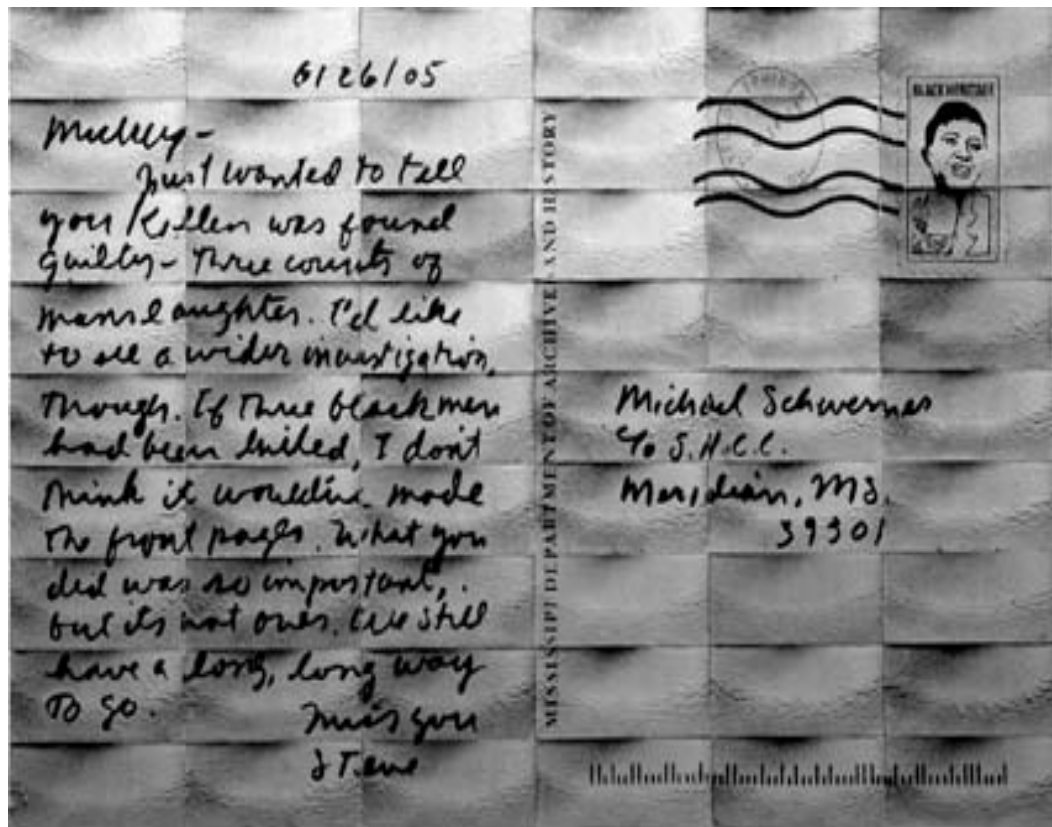 6/26/05
Mickey-
Just wanted to tell
you Killen was found
guilty- three counts of
manslaughter. I'd like
to see a wider investigation,
though. If three black men
had been killed, I don't
think it would've made
the front pages. What you
did was so important,
but it's not over. We still
have a long, long way
to go.
Miss you
Steve
MISSISSIPPI DEPARTMENT OF ARCHIVES AND HISTORY
BLACK HERITAGE
Michael Schwerner
Meridian, MS.
39301